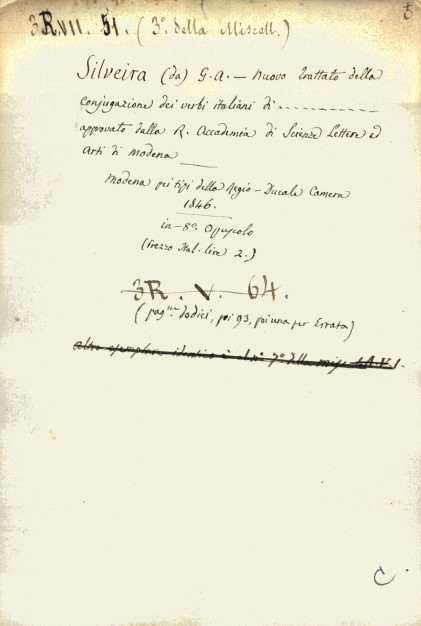 3R.VII. 51. (3º. della Miscell.)
Silveira (da) G. A. — Nuovo trattato della
conjugazione dei verbi italiani di ............
approvato dalla R. Accademia di Scienze Lettere ed
Arti di Modena
Modena pei tipi della Regio-Ducale Camera
1846.
in-8º. Opuscolo
(Prezzo Ital. lire 2.)
3R. V. 64.
(pagne dodici, poi 93, poi una per Errata)
altro esemplare identico è al nº 7º della misc.
C